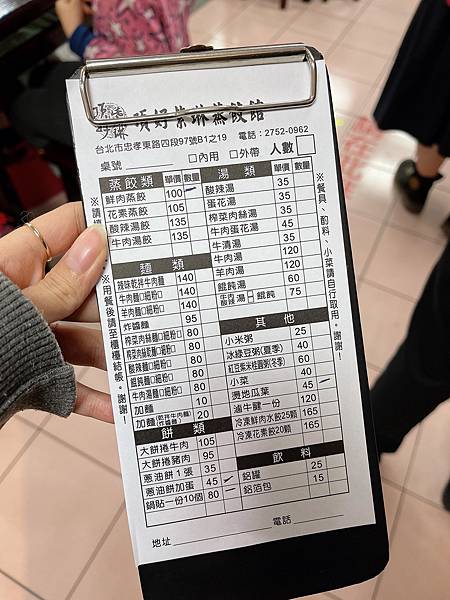 頂好紫琳蒸餃館
台北市忠孝東路四段97號B1之19 電話：2752-0962
桌號 □內用 □外帶 人數
蒸餃類 單價 數量
鮮肉蒸餃 100
花素蒸餃 105
酸辣湯餃 135
牛肉湯餃 135
麵類
辣味乾拌牛肉麵 140
牛肉湯麵□細粉□ 140
羊肉湯麵□細粉□ 140
炸醬麵 95
榨菜肉絲麵□細粉□ 80
榨菜肉絲乾麵□細粉□ 80
酸辣麵□細粉□ 80
餛飩麵□細粉□ 80
牛肉湯麵□細粉□ 80
加麵 10
加麵(乾拌牛肉麵)(炸醬麵) 20
餅類
大餅捲牛肉 105
大餅捲豬肉 95
蔥油餅1張 35
蔥油餅加蛋 45
鍋貼一份10個 80
湯類 單價 數量
酸辣湯 35
蛋花湯 35
榨菜肉絲湯 35
牛肉蛋花湯 45
牛清湯 35
牛肉湯 120
羊肉湯 120
餛飩湯 60
酸辣□牛肉湯□餛飩 75
其他
小米粥 25
冰綠豆粥(夏季) 40
紅豆紫米桂圓粥(冬季) 60
小菜 40
燙地瓜葉 45
滷牛腱一份 200
冷凍鮮肉水餃25顆 165
冷凍花素餃20顆 165
飲料
鋁罐 25
鋁箔包 15
※餐具、酌料、小菜請自行取用。謝謝！
※用餐後請至櫃檯結帳。謝謝！
電話
地址